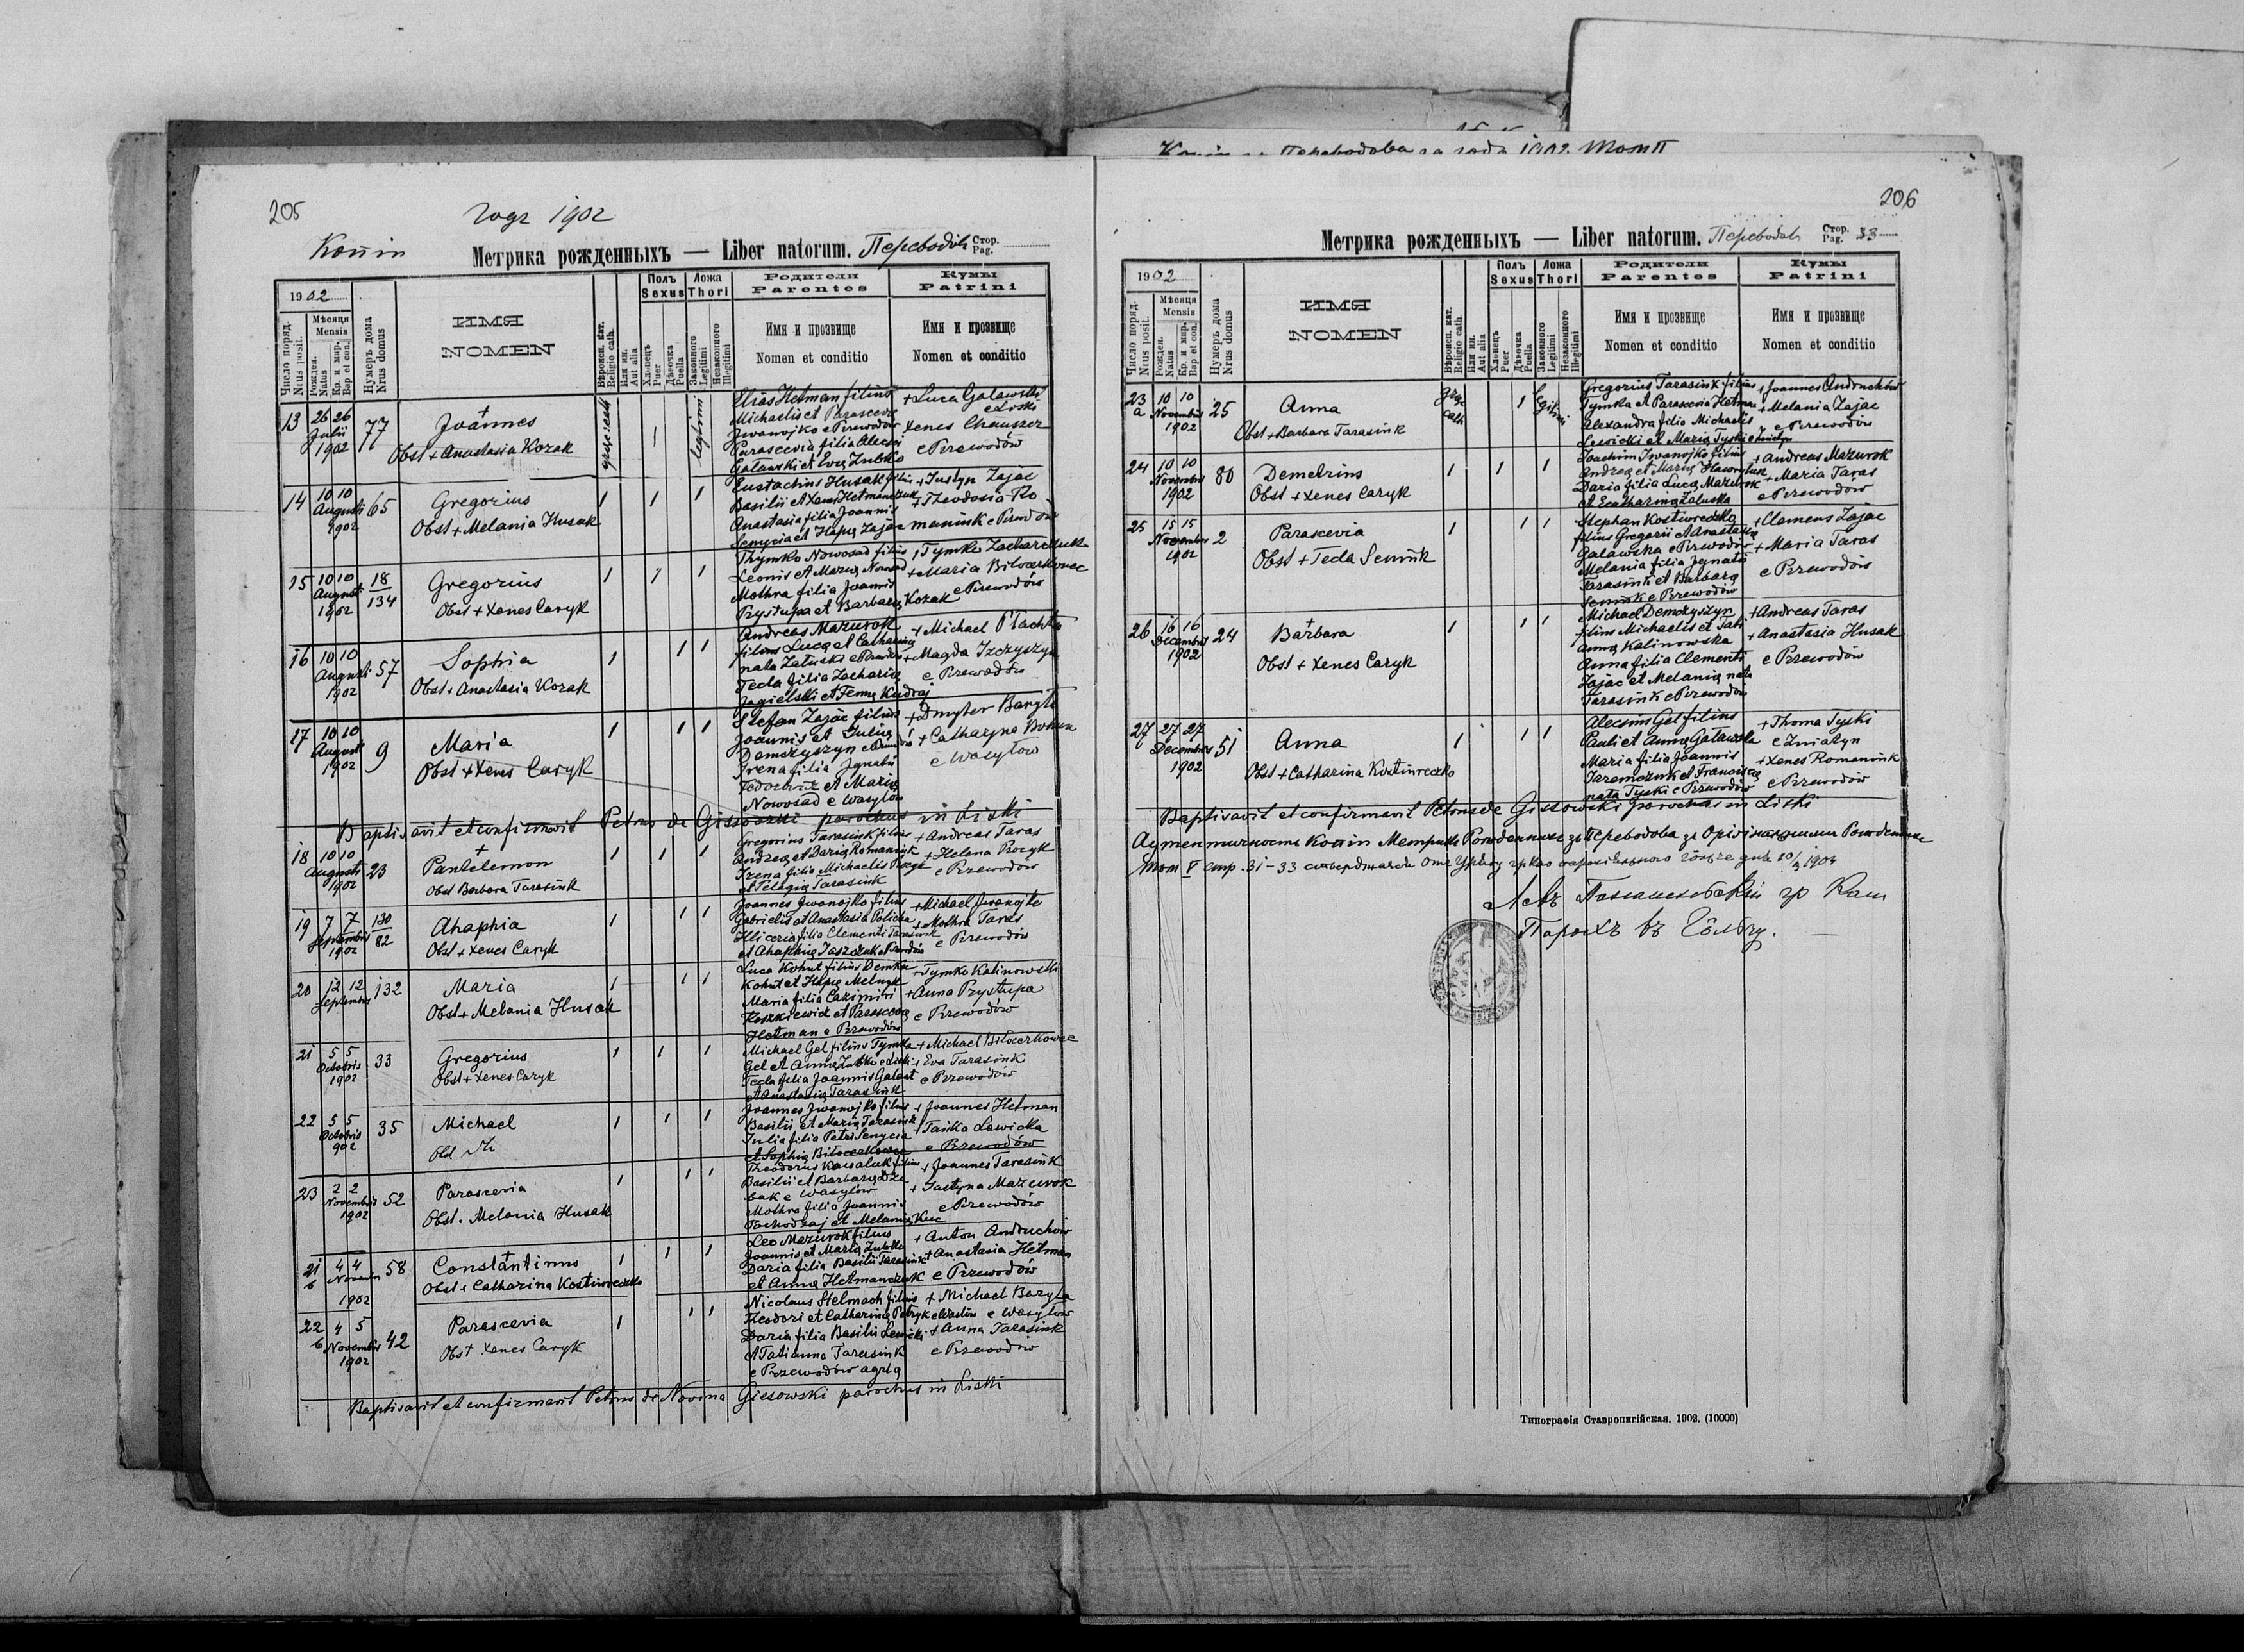 Копія Переводова за годъ 1902. Том II
205
годъ 1902
Копія
Метрика рожденныхъ — Liber natorum. Переводів Стор. Pag.
1902
Число поряд. Nrus posit.
Мѣсяця Mensis
Рожден. Natus
Кр. и мир. Bap et con.
Нумеръ дома Nrus domus
ИМЯ
NOMEN
Вѣроисп. кат. Religio cath.
Или ин. Aut alia
Полъ Sexus
Хлопецъ Puer
Дѣвочка Puella
Ложа Thori
Законного Legitimi
Незаконного Illegitimi
Родители
Parentes
Имя и прозвище
Nomen et conditio
Кумы
Patrini
Имя и прозвище
Nomen et conditio
13 26 26 Julii 1902 77
Joannes
Obst + Anastasia Kozak
legitimi
Elias Hetman filius
Michaelis et Parascevia
Iwanojko e Przewodów
Parascevia filia Alecsii
Galawski et Eva Zubko
+ Luca Galawski
e Liski
Xenes
e Przewodów
14 10 10 Augusti 1902 65
Gregorius
Obst + Melania Husak
Eustachius Husak filius
Basilii et Xenes Hetmanczuk
Anastasia filia Joannis
Senycia et Hapię Zając
+ Justyn Zając
+ Theodosia Romaniuk e Przewodów
15 10 10 Augusti 1902 18/134
Gregorius
Obst + Xenes Caryk
Thymko Nowosad filius
Leonis et Marię Nowosad
Mothra filia Joannis
Prystupa et Barbarę Kozak
+ Tymko Zacharczuk
+ Maria Bilocerkowec
e Przewodów
16 10 10 Augusti 1902 57
Sophia
Obst + Anastasia Kozak
Andreas Mazurok
filius Lucę et Catharinę
nata Załuski e Przewodów
Tecla filia Zacharię
Jagielski et Fennę Kudraj
+ Michael Płachta
+ Magda Izczyszyn
e Przewodów
17 10 10 Augusti 1902 9
Maria
Obst + Xenes Caryk
Stefan Zając filius
Joannis et Julię
Demczyszyn e Przewodów
Irena filia Ignatii
et Marię
Nowosad e Wasylów
+ Dmyter Baryła
+ Catharyna Bohun
e Wasylow
Baptisavit et confirmavit Petrus de Gissowski parochus in Liski
18 10 10 Augusti 1902 23
Pantelemon
Obst Barbara Tarasiuk
Gregorius Tarasiuk filius
Andreę et Darię Romaniuk
Irena filia Michaelis Procyk
et Pelagię Tarasiuk
+ Andreas Taras
+ Helena Procyk
e Przewodów
19 7 7 Septembris 1902 130/82
Ahaphia
Obst + Xenes Caryk
Joannes Iwanojko filius
Gabrielis et Anastasia Policha
Hliceria filia Clementi Tarasiuk
+ Michael Iwanojko
+ Mothra Taras
e Przewodów
20 12 12 Septembris 132
Maria
Obst + Melania Husak
Luca Kohut filius Demka
Kohut et Hapię Melnyk
Maria filia Cazimiri
Koszkiewicz et Parascevię
Hetman e Przewodów
+ Tymko Kalinowski
+ Anna Prystupa
e Przewodów
21 5 5 Octobris 1902 33
Gregorius
Obst + Xenes Caryk
Michael Gel filius Tymka
Gel et Annę Zubko e Liski
Tecla filia Joannis Galant
et Anastasię Tarasiuk
+ Michael Bilocerkowec
+ Eva Tarasiuk
e Przewodów
22 5 5 Octobris 902 35
Michael
Joannes Iwanojko filius
Basilii et Marię Tarasiuk
Julia filia Petri Senycia
et Sophię Bilocerkowec
+ Joannes Hetman
+ Tańka Lewicka
e Przewodów
23 2 2 Novembris 1902 52
Parascevia
Obst. Melania Husak
Theodorus Kowaluk filius
Basilii et Barbarę Dziabak e Wasylów
Mothra filia Joannis
Pochodzaj et Melanię Kuc
+ Joannes Tarasiuk
+ Justyna Mazurok
e Przewodów
21 b 4 4 Novembris 1902 58
Constantinus
Obst + Catharina Kostiureczko
Leo Mazurok filius
Joannis et Marię Zubko
Daria filia Basilii Tarasiuk
et Annę Hetmanczuk
+ Anton Andruchów
+ Anastasia Hetman
e Przewodów
22 b 4 5 Novembris 1902 42
Parascevia
Obst Xenes Caryk
Nicolaus Stelmach filius
Theodori et Catharinę Patryk
Daria filia Basilii Lewicki
et Tatianna Tarasiuk
e Przewodów agrlą
+ Michael Baryła
e Wasylow
+ Anna Tarasiuk
e Przewodów
Baptisavit et confirmavit Petrus de Novina Giesowski parochus in Liski
206
Метрика рожденныхъ — Liber natorum. Переводів Стор. Pag. 33
1902
Число поряд. Nrus posit.
Мѣсяця Mensis
Рожден. Natus
Кр. и мир. Bap et con.
Нумеръ дома Nrus domus
ИМЯ
NOMEN
Вѣроисп. кат. Religio cath.
Или ин. Aut alia
Полъ Sexus
Хлопецъ Puer
Дѣвочка Puella
Ложа Thori
Законного Legitimi
Незаконного Illegitimi
Родители
Parentes
Имя и прозвище
Nomen et conditio
Кумы
Patrini
Имя и прозвище
Nomen et conditio
23 a 10 10 Novembris 1902 25
Anna
Obst + Barbara Tarasiuk
Gregorius Tarasiuk filius
Tymka et Parascevia Hetman
Alexandra filia Michaelis
Lewicki et Marię Tyski e Zniatyn
+ Joannes Andruchów
+ Melania Zając
e Przewodów
24 10 10 Novembris 1902 80
Demetrius
Obst + Xenes Caryk
Joachim Iwanojko filius
Andreę et Marię Hawryluk
Daria filia Lucę Mazurok
et Ecatharinę Zaluska
+ Andreas Mazurok
+ Maria Taras
e Przewodów
25 15 15 Novembris 1902 2
Parascevia
Obst + Tecla Semiuk
Stephan Kostiureczko
filius Gregorii et Anastasię
Galawska e Przewodów
Melania filia Ignatii
Tarasiuk et Barbarę
Semiuk e Przewodów
+ Clemens Zając
+ Maria Taras
e Przewodów
26 16 16 Decembris 1902 24
Barbara
Obst + Xenes Caryk
Michael Demczyszyn
filius Michaelis et Tatiannę Kalinowska
Anna filia Clementi
Zając et Melanię nata
Tarasiuk e Przewodów
+ Andreas Taras
+ Anastasia Husak
e Przewodów
27 27 27 Decembris 1902 51
Anna
Obst + Catharina Kostiureczko
Alecsius Gel filius
Pauli et Annę Galawska
Maria filia Joannis
Jaremczuk et Franciscę
nata Tyski e Przewodów
+ Thoma Tyski
e Zniatyn
+ Xenes Romaniuk
e Przewodów
Baptisavit et confirmavit Petrus de Gissowski parochus in Liski
Аутентичность Копіи Метрикъ Рожденныхъ зъ Переводова
Том V стор. 31-33 1903
Парохъ въ
Типографія Ставропигійская. 1902. (10000)